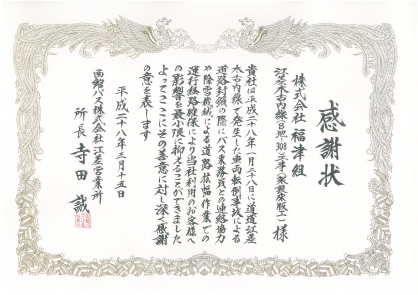 感謝状
株式会社 福津組
様
貴社は平成二八年一月二八日に道道江差
木古内線で発生した車両転倒事故による
道路封鎖の際にバス乗務員との連絡協力
や除雪機械による道路拡幅作業での
運行経路確保により当社利用のお客様へ
の影響を最小限に抑えることができました
よってここにその善意に対し深く感謝
の意を表します
平成二十八年三月十五日
函館バス株式会社江差営業所
所長 寺田